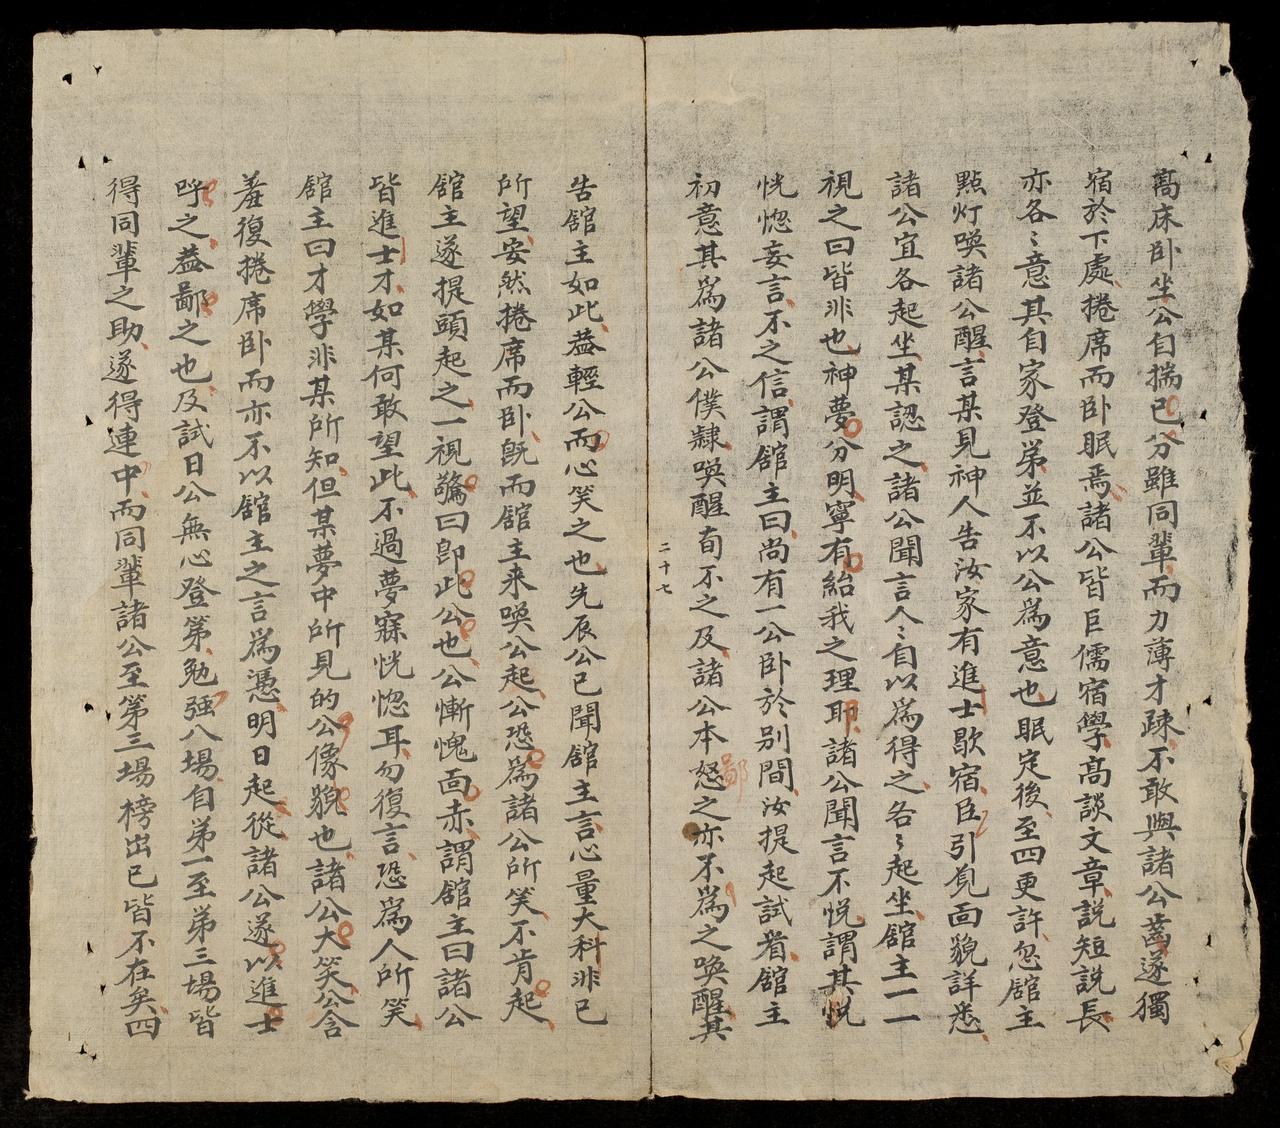 高床卧坐公自揣已分雖同輩而力薄才疎不敢與諸公齒遂獨
宿於下處捲席而卧眠焉諸公皆巨儒宿學高談文章說短說長
亦各〻意其自家登弟並不以公爲意也眠定後至四更許忽舘主
點灯喚諸公醒言某見神人告汝家有進士歇宿臣引見面貌詳悉
諸公宜各起坐某認之諸公聞言人〻自以爲得之各〻起坐舘主一一
視之曰皆非也神夢分明寧有紿我之理耶諸公聞言不悅謂其恱
恍惚妄言不之信謂舘主曰尚有一公卧於别間汝提起試看舘主
初意其爲諸公僕隸喚醒有不之及諸公本怒之亦不爲之喚醒其
鄙
二十七
告舘主如此葢輕公而心笑之也先辰公已聞舘主言心量大科非已
所望安然捲席而卧旣而舘主来喚公起公恐爲諸公所笑不肯起
舘主遂提頭起之一視驚曰卽此公也公慚愧面赤謂舘主曰諸公
皆進士才如某何敢望此不過夢寐恍惚耳勿復言恐爲人所笑
舘主曰才學非某所知但某夢中所見的公像貌也諸公大笑公含
羞復捲席卧而亦不以舘主之言爲憑明日起從諸公遂以進士
呼之葢鄙之也及試日公無心登第勉强入場自第一至第三場皆
得同輩之助遂得連中而同輩諸公至第三場榜出已皆不在矣四